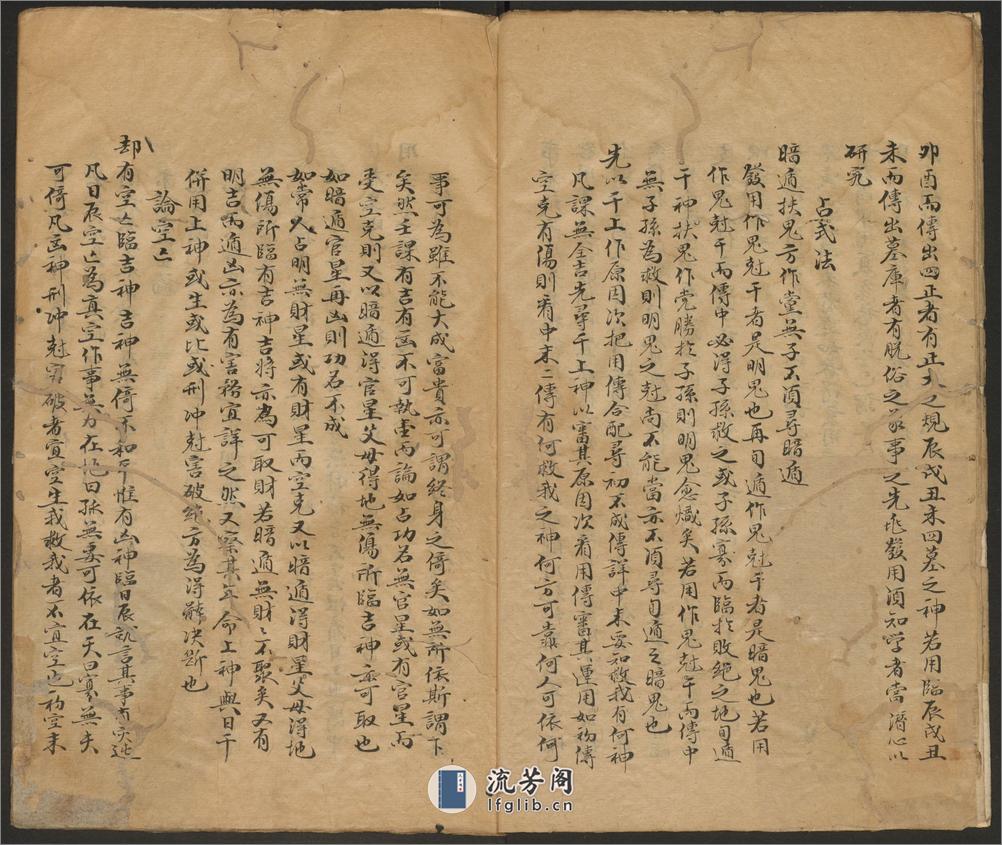 卯酉而傳出四正者有正大之規辰戌丑未四墓之神若用臨辰戌丑
未而傳出墓庫者有脫俗之家事之先兆發用須知学者當潛心以
研究
占武法
暗遁扶鬼方作黨無子不須尋暗遁
發用作鬼尅干者是明鬼也再旬遁作鬼尅干者是暗鬼也若用
作鬼尅干而傳中必得子孫救之或子孫寡而臨扵敗絕之地旬遁
干神扶鬼作党勝扵子孫則明鬼愈熾矣若用作鬼尅干而傳中
無子孫為救則明鬼之尅尚不能當亦不須尋旬遁之暗鬼也
先以干上作原因次把用傳合配尋初不成傳詳中末要知救我有何神
凡課無全吉先尋干上神以審其原因次看用傳審其運用如初傳
空克有傷則看中末二傳有何救我之神何方可靠何人可依何
事可為雖不能大成富貴亦可謂終身之倚矣如無所依斯謂下
矣然壬課有吉有凶不可執壹而論如占功名無官星或有官星而
受空克則又以暗遁得官星父母得地無傷所臨吉神亦可取也
如暗遁官星再凶則功名不成
如常人占明無財星或有財星而空克又以暗遁得財星父母得地
無傷所臨有吉神吉將亦為可取財若暗遁無財〻不聚矣又有
明吉而遁凶亦為有害務宜詳之然又察其年命上神與日干
併用上神或生或比或刑冲尅害破絕方為得解决斷也
論空亡
却有空亡臨吉神吉神無倚不和平惟有凶神臨日辰訛言其事有
凡日辰空亡為真空作事無力在地曰孤無妻可依在天曰寡無夫
可倚凡凶神刑冲尅害破者宜空生我救我者不宜空也初空末
流芳阁
lfglib.cn